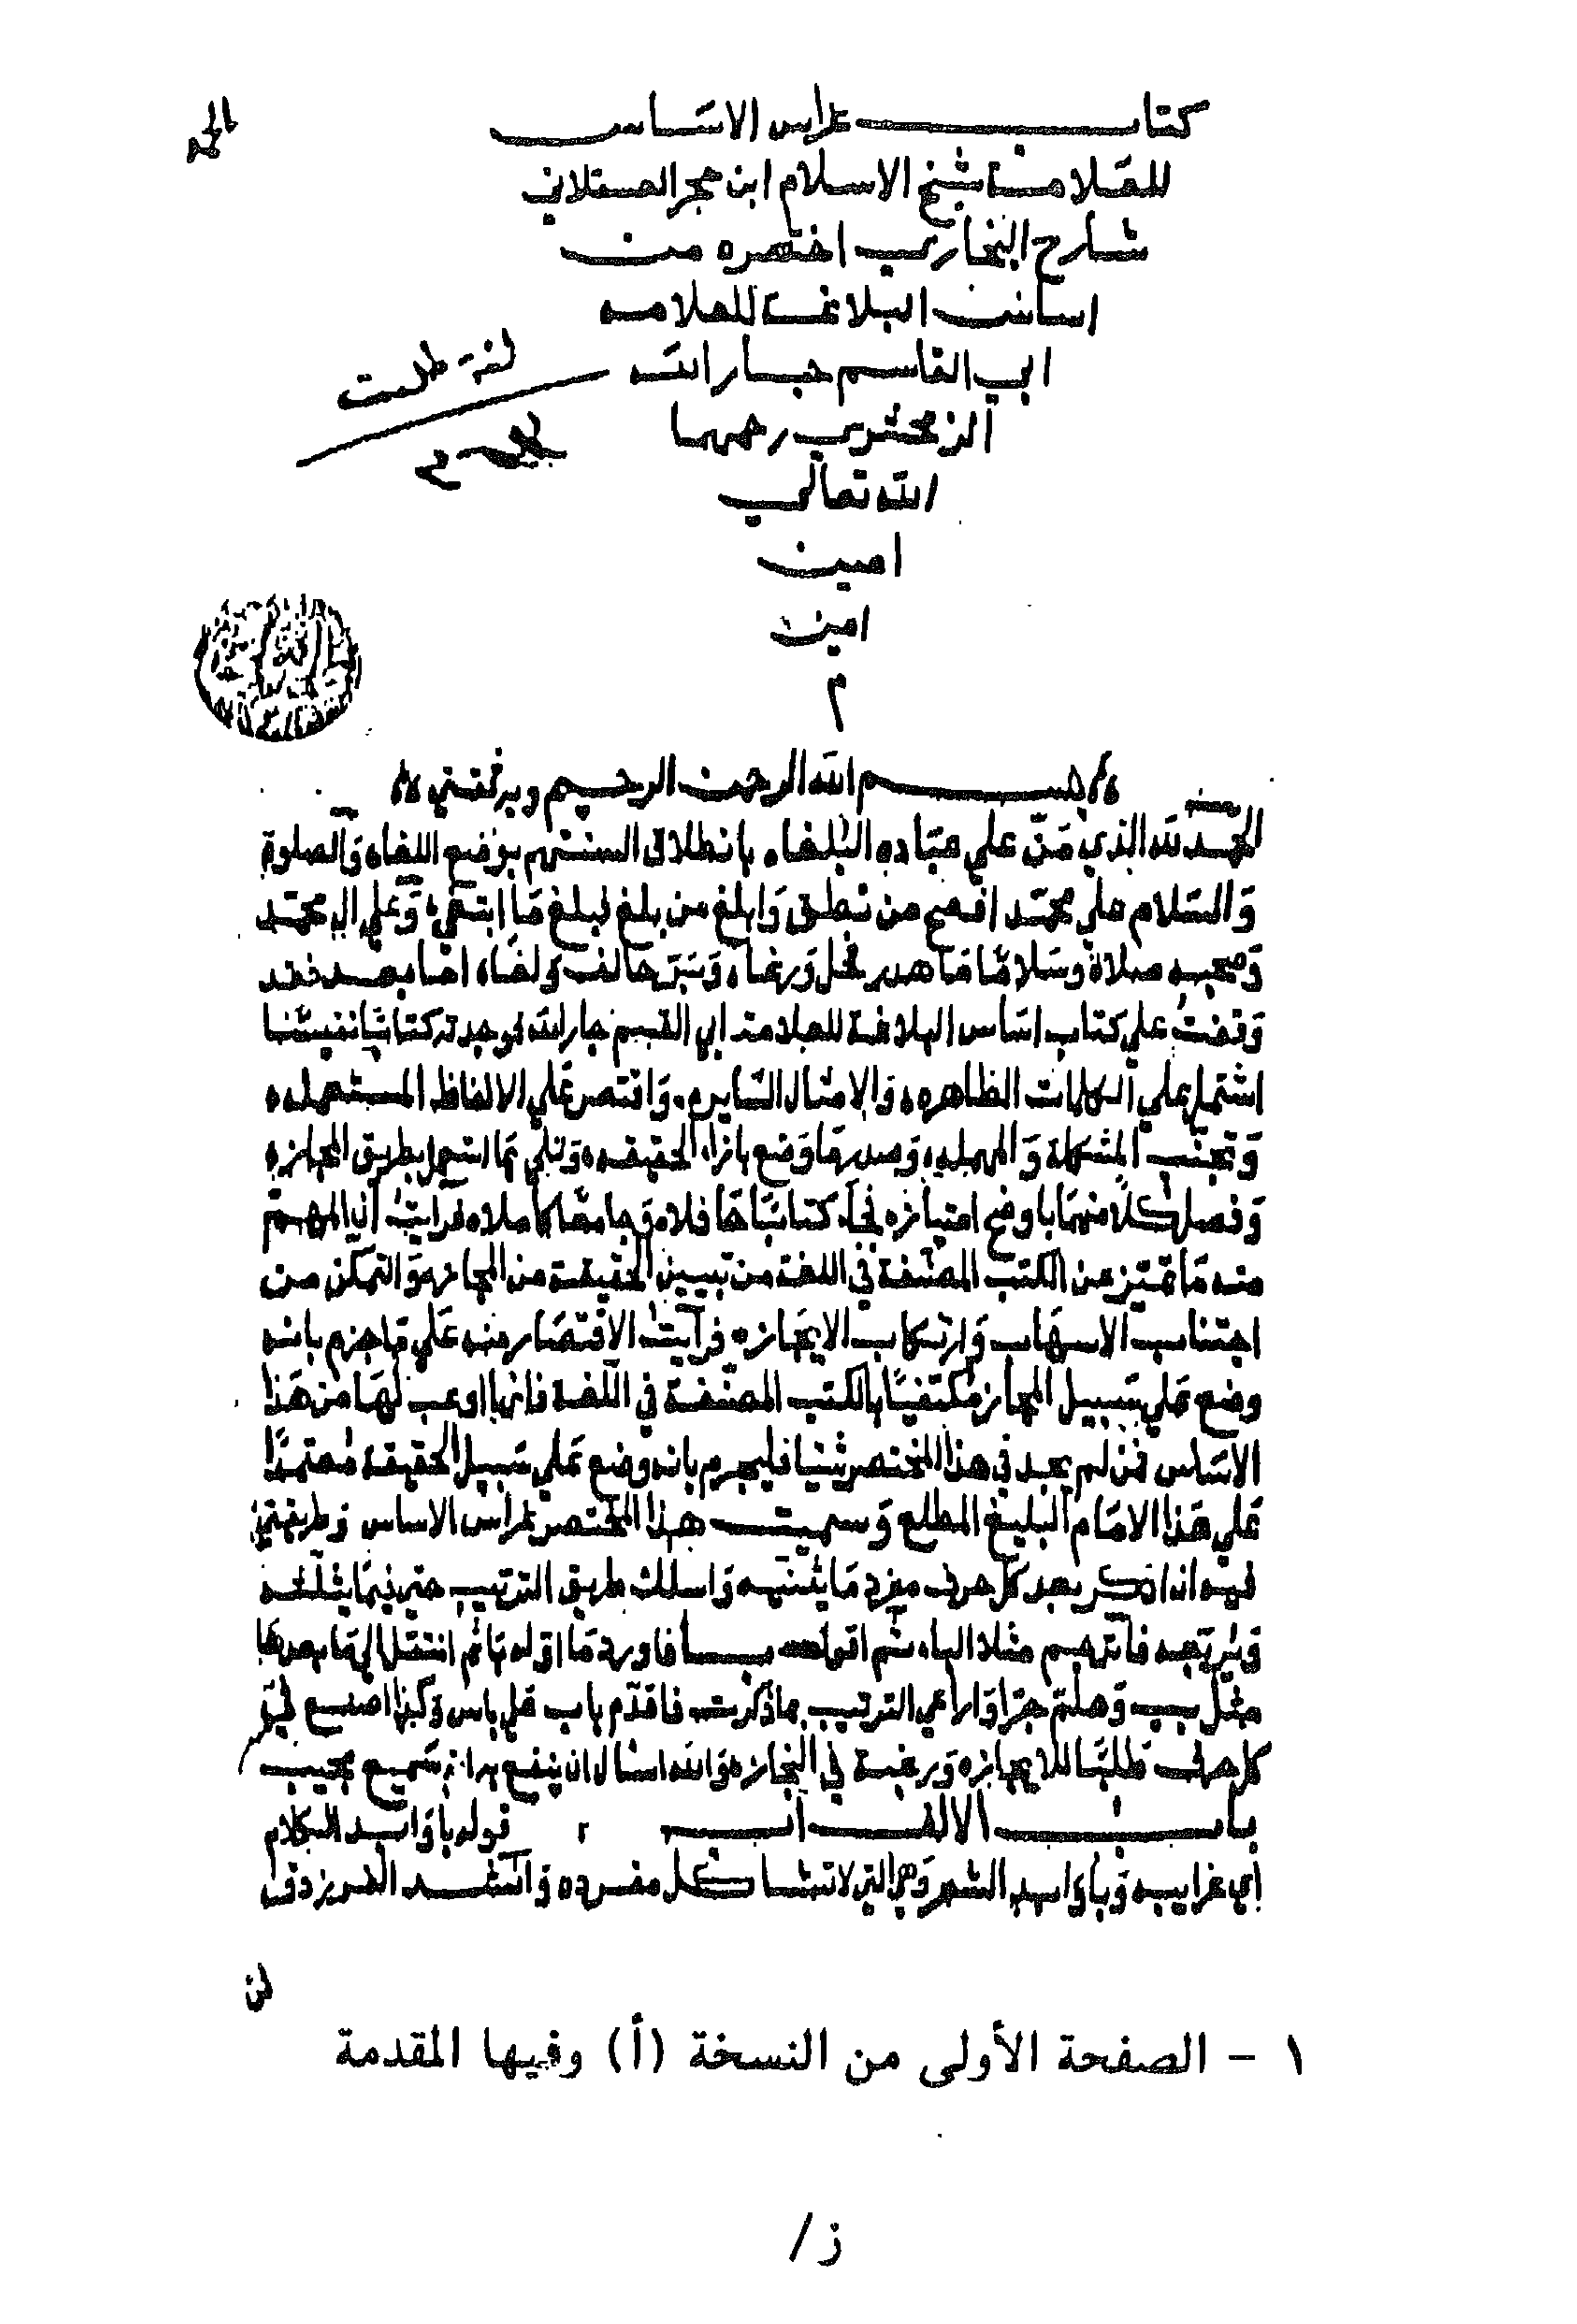 كتاب غراس الاساس
للعلامة شيخ الاسلام ابن حجر العسقلاني
شارح البخاري اختصره من
اساس البلاغة للعلامه
ابي القاسم جار الله
الزمخشري رحمهما
الله تعالي
امين
امين
م
لغة طلعت
بسم الله الرحمن الرحيم وبه ثقتي
الحمد لله الذي مَنّ علي عباده البلغاء بانطلاق السنتهم بوضع اللغاه والصلوة
والسّلام علي محمّد افصح من نطق وابلغ من بلغ فبلغ ما ابتغي وعلي ال محمّد
وصحبه صلاة وسلامًا ما هدر فحل ورغاه
وقفتُ علي كتاب اساس البلاغة للعلامة ابي القسم جار الله فوجدته كتابًا نفيسًا
اشتمل علي الكلمات الظاهره والامثال السّايره واقتصر علي الالفاظ المستعمله
وتجنّب المشكلة والمهمله وصدر ما وضع بازاء الحقيقه وتلي بما استعمل بطريق المجازه
وفصل كلًا منهما باوضح امتيازه فجاء كتابًا حافلاه وجامعًا كاملاه فرايتُ أن المهمّ
منه ما تميّز عن الكتب المصنّفة في اللغة من تبيين الحقيقة من المجازه والتمكن من
اجتناب الاسهاب وارتكاب الايجازه فرأيتُ الاقتصار منه علي ما جزم بانه
وضع علي سَبيل المجاز مكتفيًا بالكتب المصنّفة في اللّغة فانها اوعب لها من هَذا
الاسَاس فمن لم يجد في هذا المختصر شيئا فليجزم بانه وضع علي سَبيل الحقيقه معتمدًا
علي هَذا الامَام البليغ المطلع وسميت هذا المختصر غراس الاساس وطريقتي
فيه ان اذكر بعد كل حرف مفرد ما يثنيه واسلك طريق الترتيب حتي فيما يثلثه
ويُربّعه فاترجم مثلا الباء ثم اقول با فاورد ما اوله با ثم انتقل الي ما بعدها
مثل بب وهلمّ جرّا واراعي الترتيب بما ذكرت فاقدّم باب علي باس وكذا اصنع في
كل حرف طلبًا للايجازه ورغبة في النجازه والله اسال ان ينفع به انه سَميع مجيب
باب الالف ابد قوله باوابد الكلام
اي غرايبه وباوابد الشعر وهي التي لا تشاكل مفرده وانشد الفرزدق
لن
١ - الصفحة الأولى من النسخة (أ) وفيها المقدمة
ز /